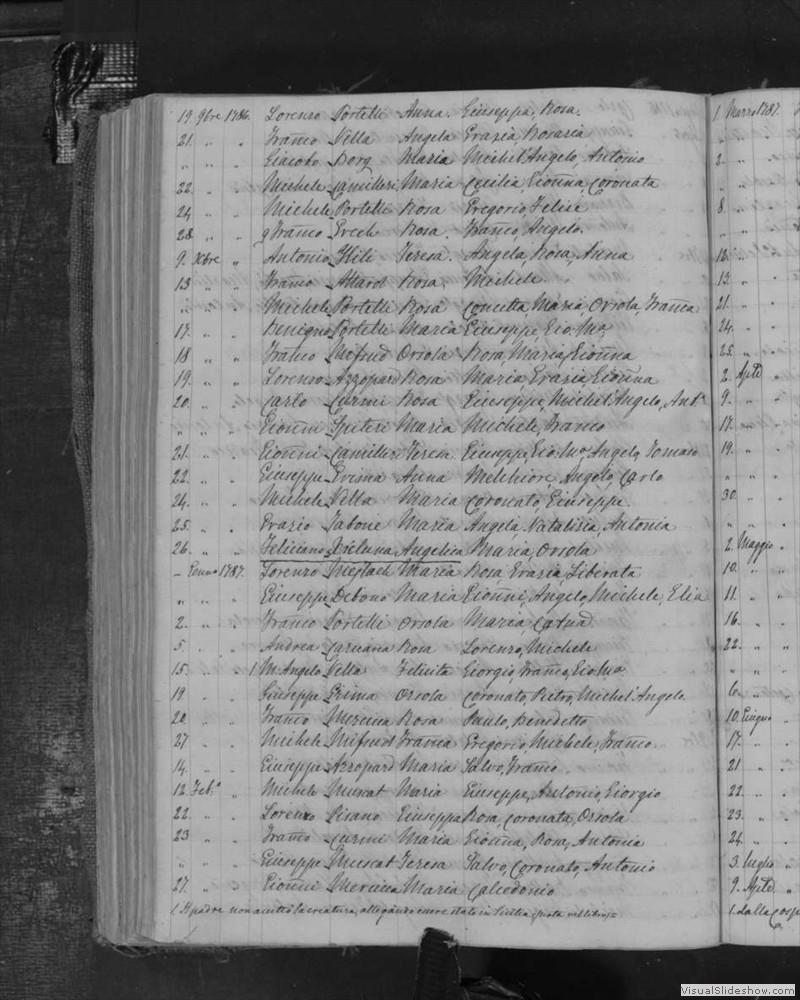 19. 9bre 1786. Lorenzo Portelli Anna. Giuseppa, Rosa.
21. " " Franco Vella Angela Grazia, Rosaria
" " " Giacobo Borg Maria Michel'Angelo, Antonio
22. " " Michele Camilleri Maria Cecilia Gionna, Coronata
24. " " Michele Portelli Rosa Gregorio, Felice
28. " " Franco Grech Rosa. Franco, Angelo.
9. Xbre " Antonio Hili Teresa. Angela, Rosa, Anna
13 " " Franco Attard Rosa. Michele.
" " " Michele Portelli Rosa Concetta, Maria, Orsola, Franca
17. " " Benigno Portelli Maria Giuseppe, Gio: Ma
18 " " Franco Mifsud Orsola Rosa, Maria, Gionna
19. " " Lorenzo Azzopard Rosa Maria Grazia, Gionna
20. " " Carlo Curmi Rosa Giuseppe, Michel'Angelo, Anto
" " " Gionni Spiteri Maria Michele, Franco
21. " " Gionni Camilleri Teresa Giuseppe, Gio: Ma, Angelo, Tomaso
22. " " Giuseppe Grima Anna Melchiore, Angelo, Carlo
24. " " Michele Vella Maria Coronato, Giuseppe.
25. " " Grazio Tabone Maria Angela, Natalizia, Antonia
26. " " Feliciano Xicluna Angelica Maria, Orsola
- Genno 1787. Lorenzo Mejlach Maria Rosa, Grazia, Liberata
" " " Giuseppe Debono Maria Gionni, Angelo, Michele, Elia
2. " " Franco Portelli Orsola Maria,
5. " " Andrea Caruana Rosa Lorenzo, Michele
15. " " 1 M: Angelo Vella Felicita Giorgio, Franco, Gio: Ma
19 " " Giuseppe Grima Orsola Coronato, Pietro, Michel'Angelo
20. " " Franco Mercieca Rosa Paulo, Benedetto
27 " " Michele Mifsud Franca Gregorio, Michele, Franco.
14. " " Giuseppe Azzopard Maria Salvo, Franco.
12. Febo " Michele Muscat Maria Giuseppe, Antonio, Giorgio
22. " " Lorenzo Pisano Giuseppa Rosa, Coronata, Orsola
23 " " Franco Curmi Maria Gionna, Rosa, Antonia
" " " Giuseppe Muscat Teresa Salvo, Coronato, Antonio
27. " " Gionni Mercieca Maria Calcedonio
1 Il padre non la creatura, allegando essere stato in Sicilia
1 Marzo 1787.
" " "
2. " "
" " "
8. " "
" " "
12. " "
13. " "
21. " "
24. " "
25. " "
2. Aple "
9. " "
17. " "
19. " "
" " "
30. " "
" " "
2. Maggio "
10. " "
11. " "
16. " "
22. " "
" " "
6. " "
10. Giugno "
17. " "
21 " "
22. " "
23. " "
24. " "
3. Luglio "
9. Aple "
1. dalla
VisualSlideshow.com